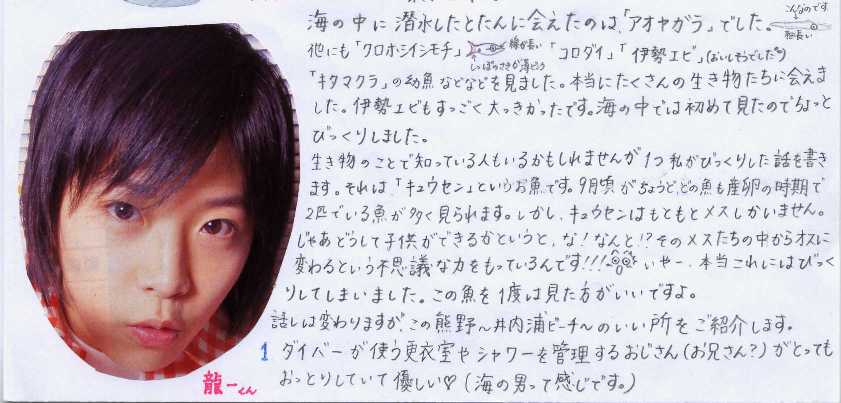 海の中に潜水したとたんに会えたのは、「アオヤガラ」でした。
こんなのです
細長い
他にも「クロホシイシモチ」
線が長い
しっぽのさきが薄ピンク
「コロダイ」「伊勢エビ」(おいしそうでした)
「キタマクラ」の幼魚などなどを見ました。本当にたくさんの生き物たちに会えま
した。伊勢エビもすっごく大っきかったです。海の中では初めて見たのでちょっと
びっくりしました。
生き物のことで知っている人もいるかもしれませんが1つ私がびっくりした話を書き
ます。それは「キュウセン」というお魚です。9月頃がちょうど、どの魚も産卵の時期で
2匹でいる魚が多く見られます。しかし、キュウセンはもともとメスしかいません。
じゃあどうして子供ができるかというと、な!なんと!?そのメスたちの中からオスに
変わるという不思議な力をもっているんです!!!いやー、本当これにはびっく
りしてしまいました。この魚を1度は見た方がいいですよ。
話しは変わりますが、この熊野〜井内浦ビーチ〜のいい所をご紹介します。
1 ダイバーが使う更衣室やシャワーを管理するおじさん(お兄さん?)がとっても
おっとりしていて優しい♡(海の男って感じです。)
龍一くん